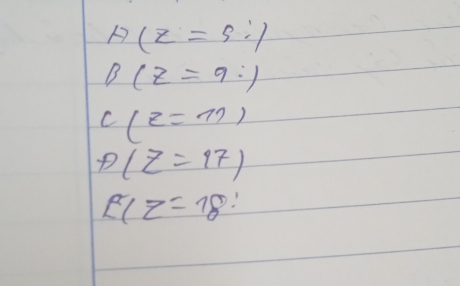 A (Z = 9:)
B (Z = 9:)
C (Z = 11)
D (Z = 17)
E (Z = 18: